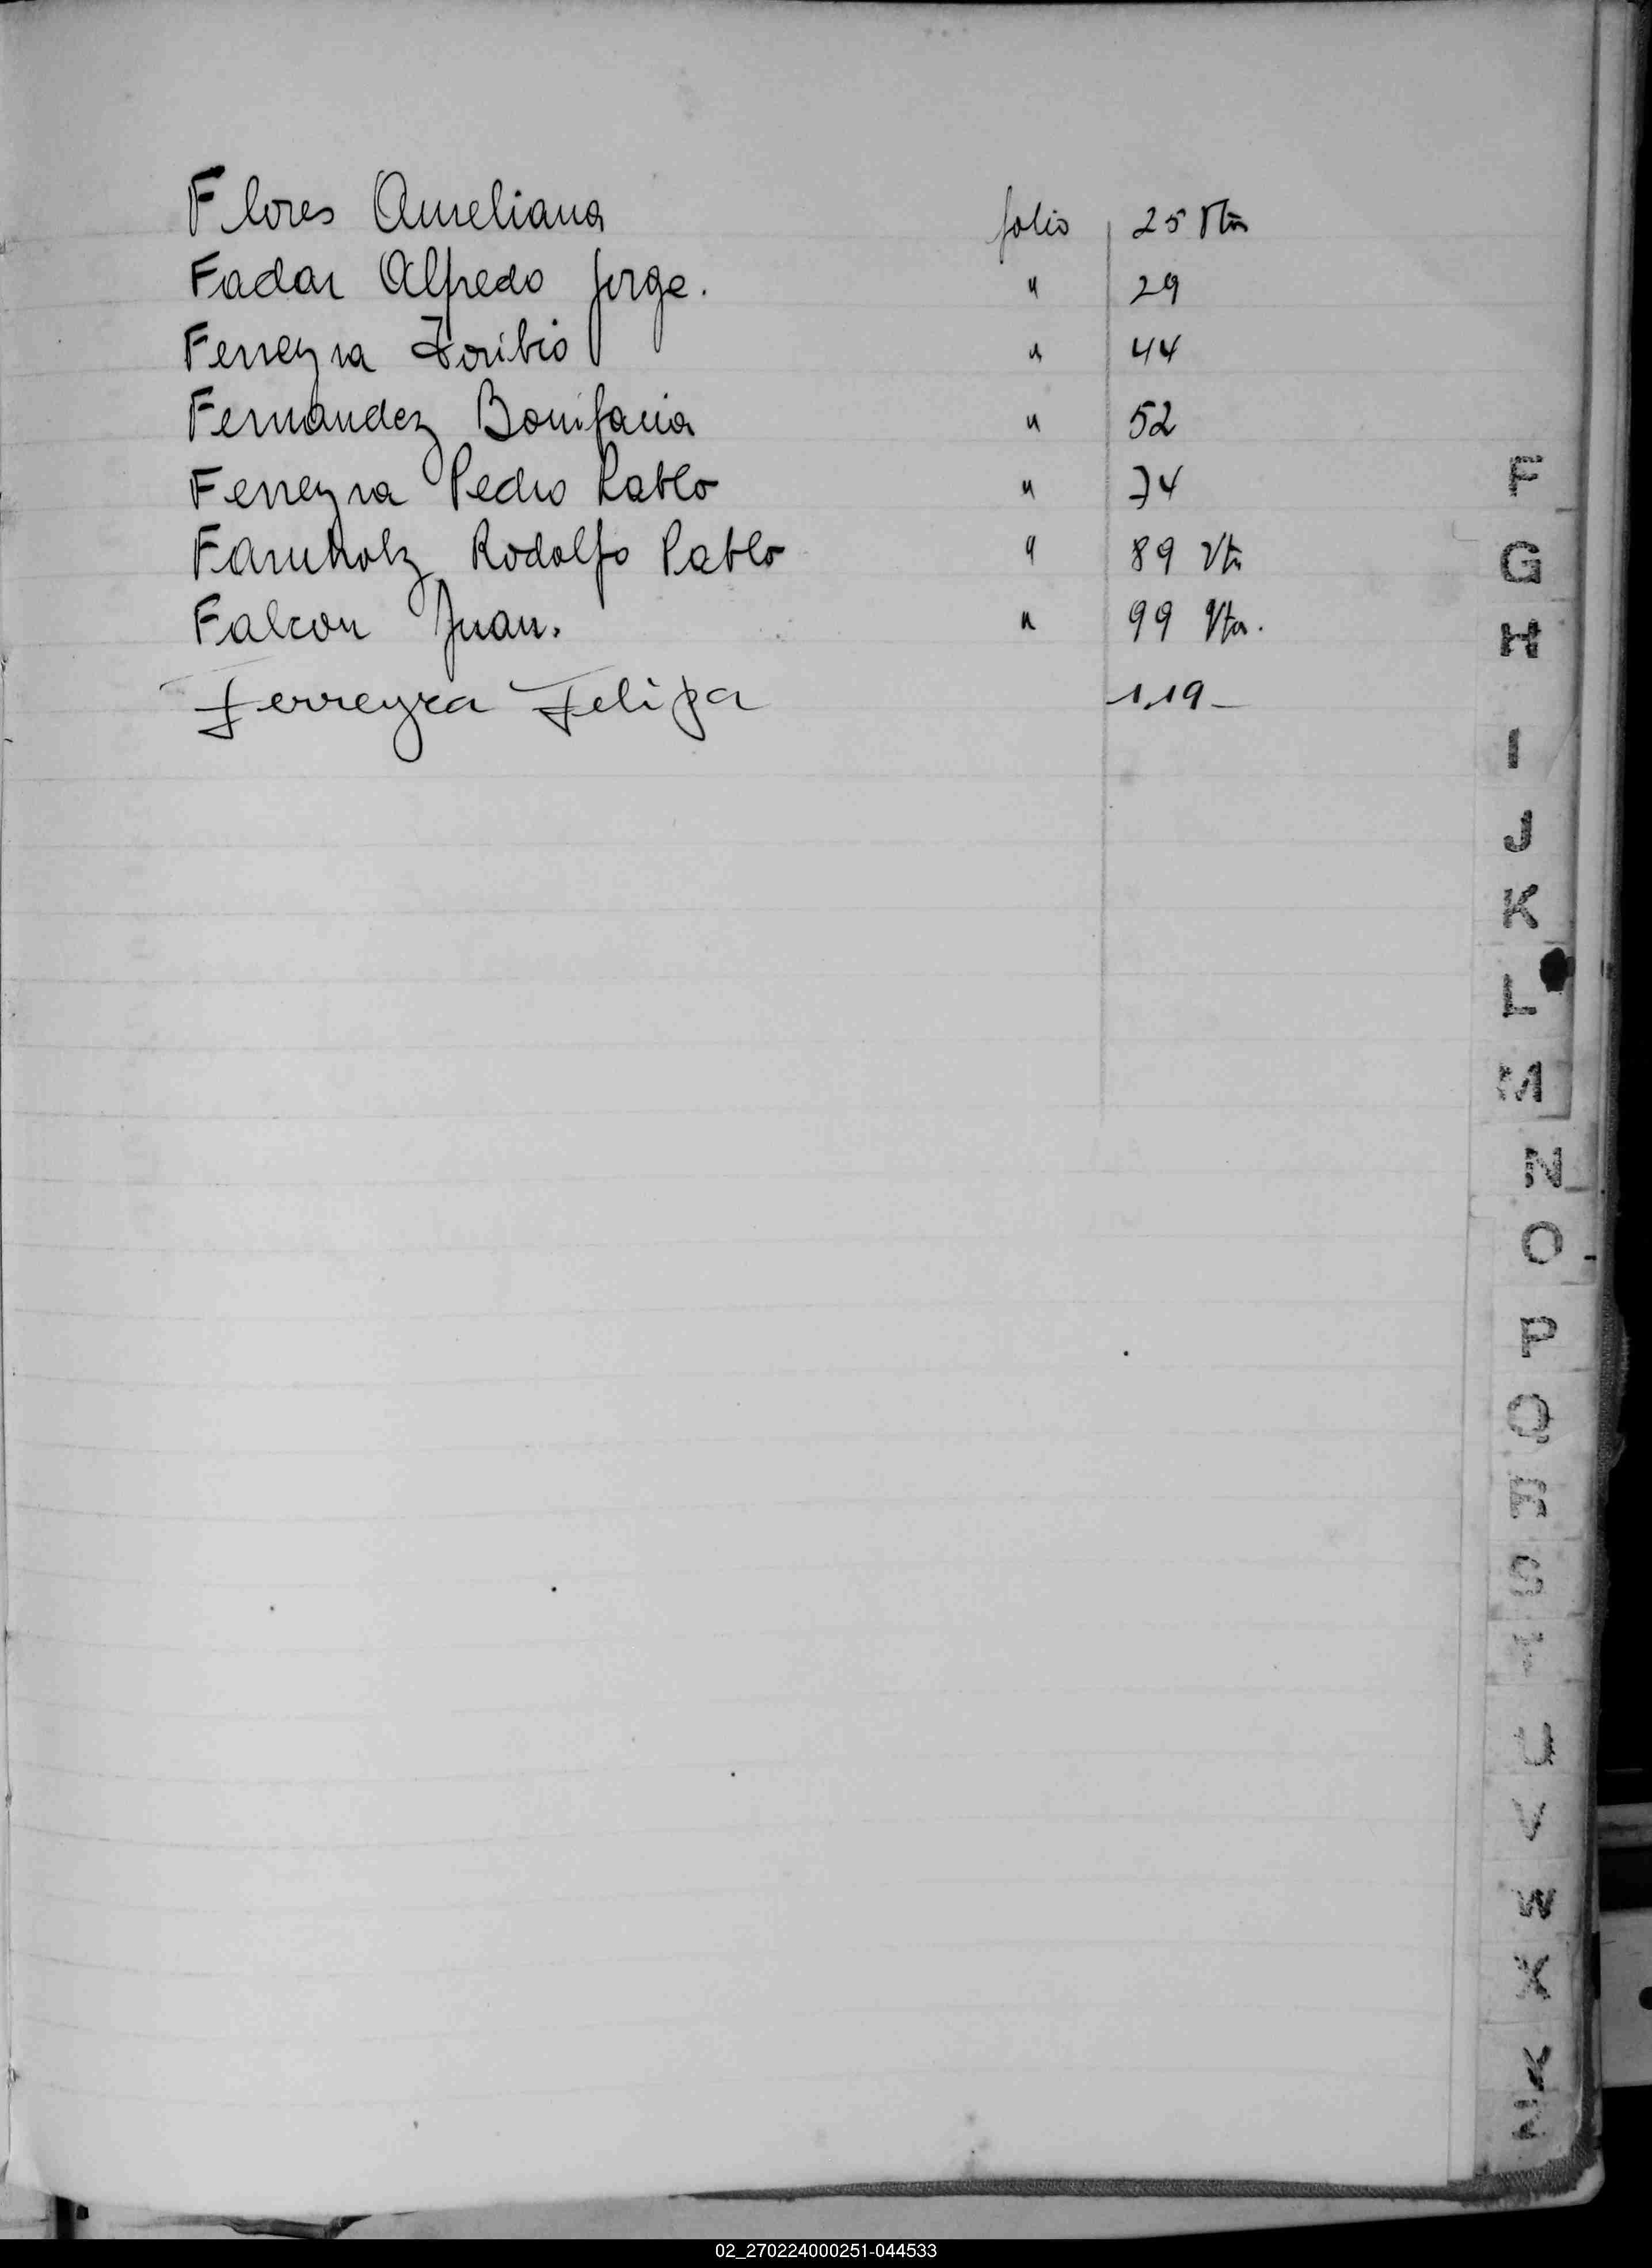 Flores Aureliana folio 25 Vta
Fadar Alfredo Jorge. " 29
Ferreyra Toribio " 44
Fernandez Bonifacia " 52
Ferreyra Pedro Pablo " 74
Rodolfo Pablo " 89 Vta
Falcon Juan. " 99 Vta.
Ferreyra Felipa 119-
F
G
H
I
J
K
L
M
N
O
P
Q
R
S
T
U
V
W
X
Y
Z
02_270224000251-044533